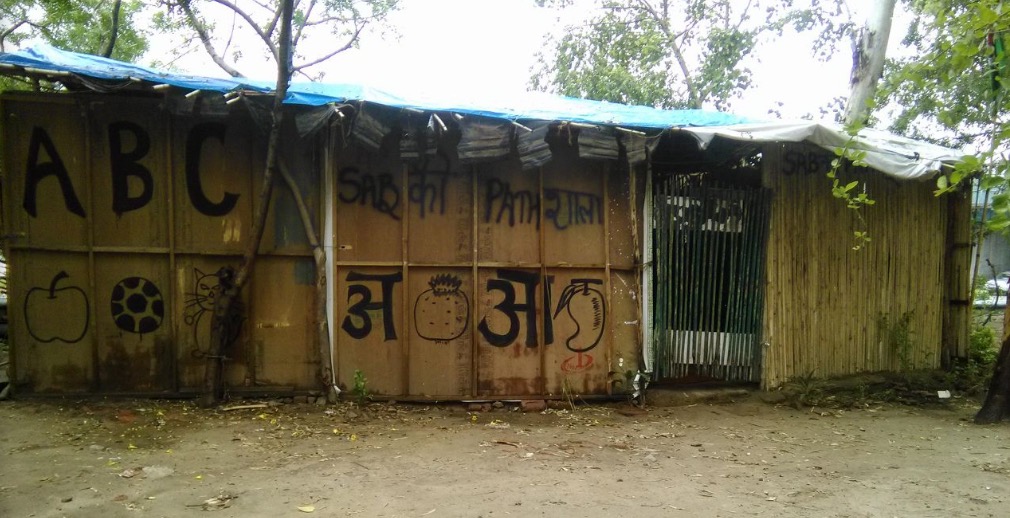 A B C
SABकी PATHशाला
अ आ
SAB